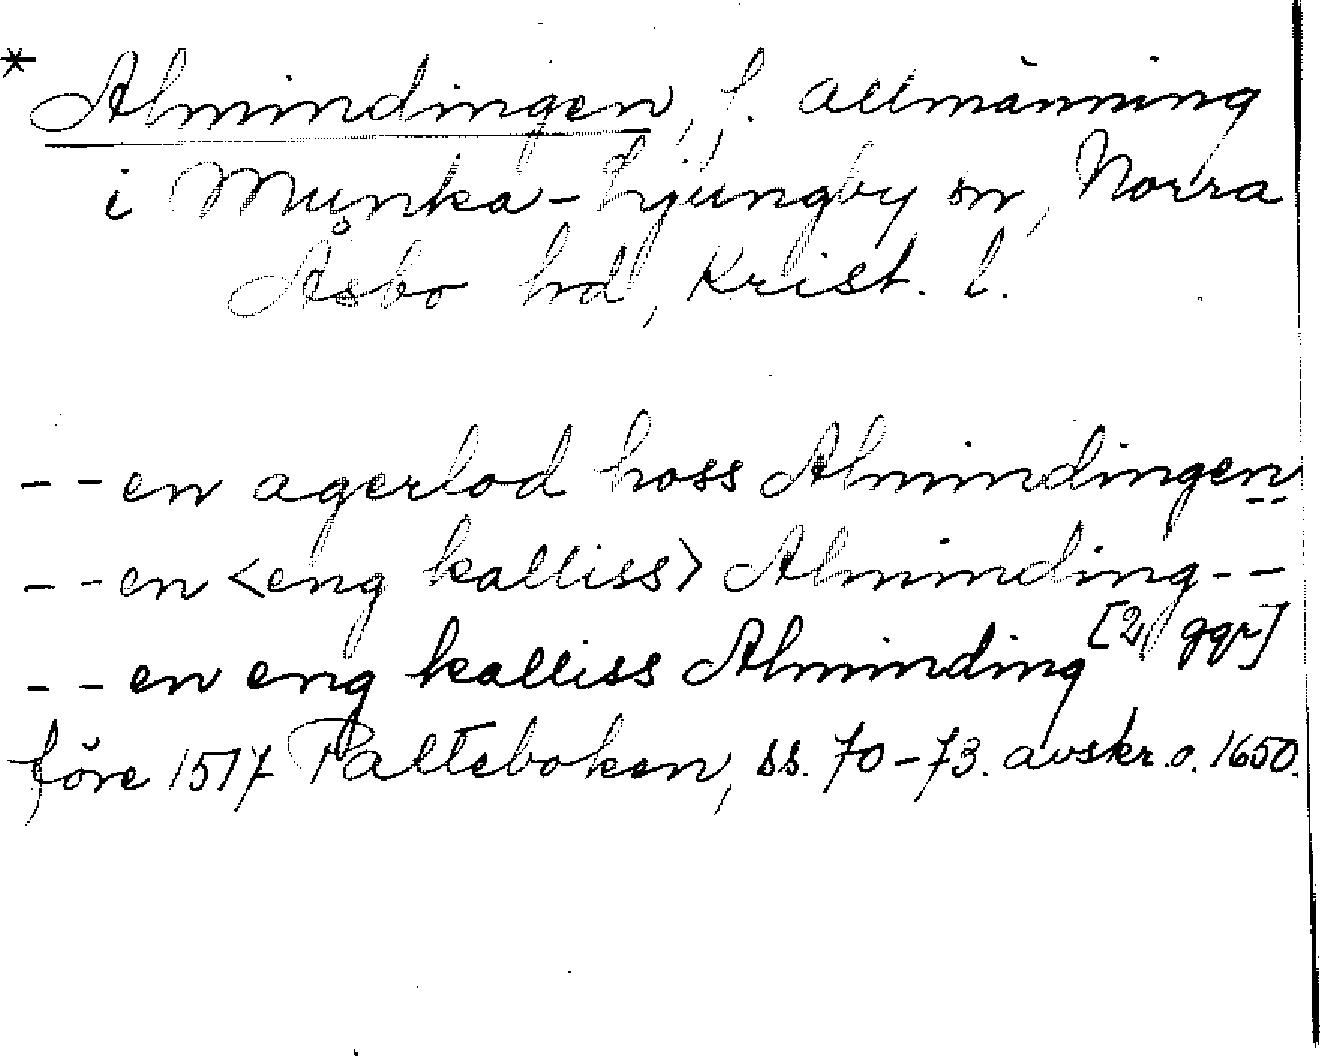 * Almindingen, f. allmänning
i Munka-Ljungby sn, Norra
Åsbo hd, Krist. l.
-- en agerlod hoss Almindingen
-- en <eng kalliss> Alminding --
-- en eng kalliss Alminding [2 ggr]
före 1517 Palteboken, ss. 70-73. avskr. o. 1650.